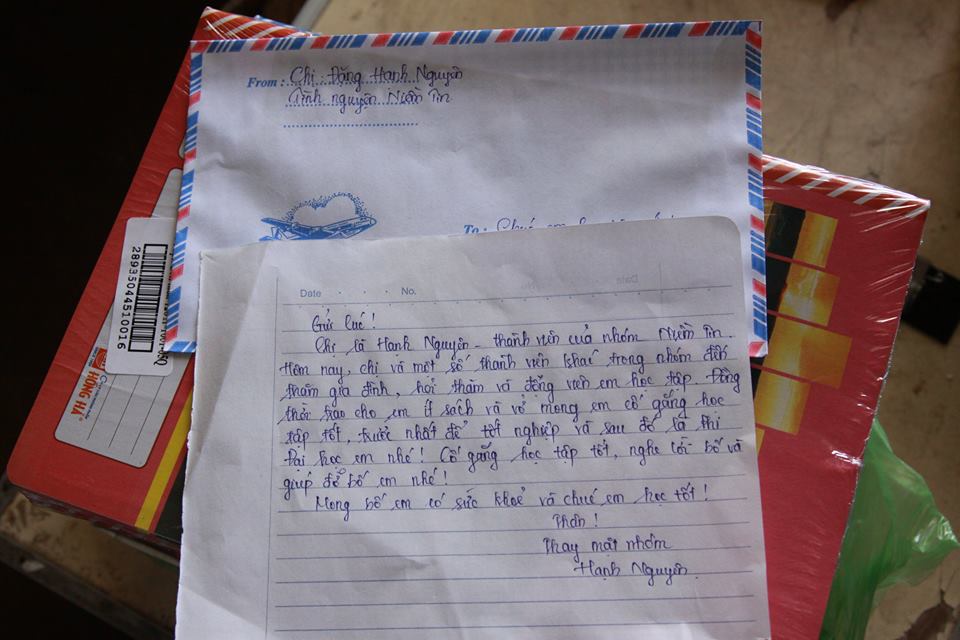 From : Chị : Đặng Hạnh Nguyên
Tình nguyện Niềm Tin
To : Chúc em
2893504451001 6
HỒNG HÀ
Date No.
Gửi Cúc!
Chị là Hạnh Nguyên - thành viên của nhóm Niềm Tin.
Hôm nay, chị và một số thành viên khác trong nhóm đến
thăm gia đình, hỏi thăm và động viên em học tập. Đồng
thời trao cho em ít sách và vở mong em cố gắng học
tập tốt, trước nhất để tốt nghiệp và sau đó là thi
Đại học em nhé! Cố gắng học tập tốt, nghe lời bố và
giúp đỡ bố em nhé!
Mong bố em có sức khoẻ và chúc em học tốt!
Thân!
Thay mặt nhóm
Hạnh Nguyên